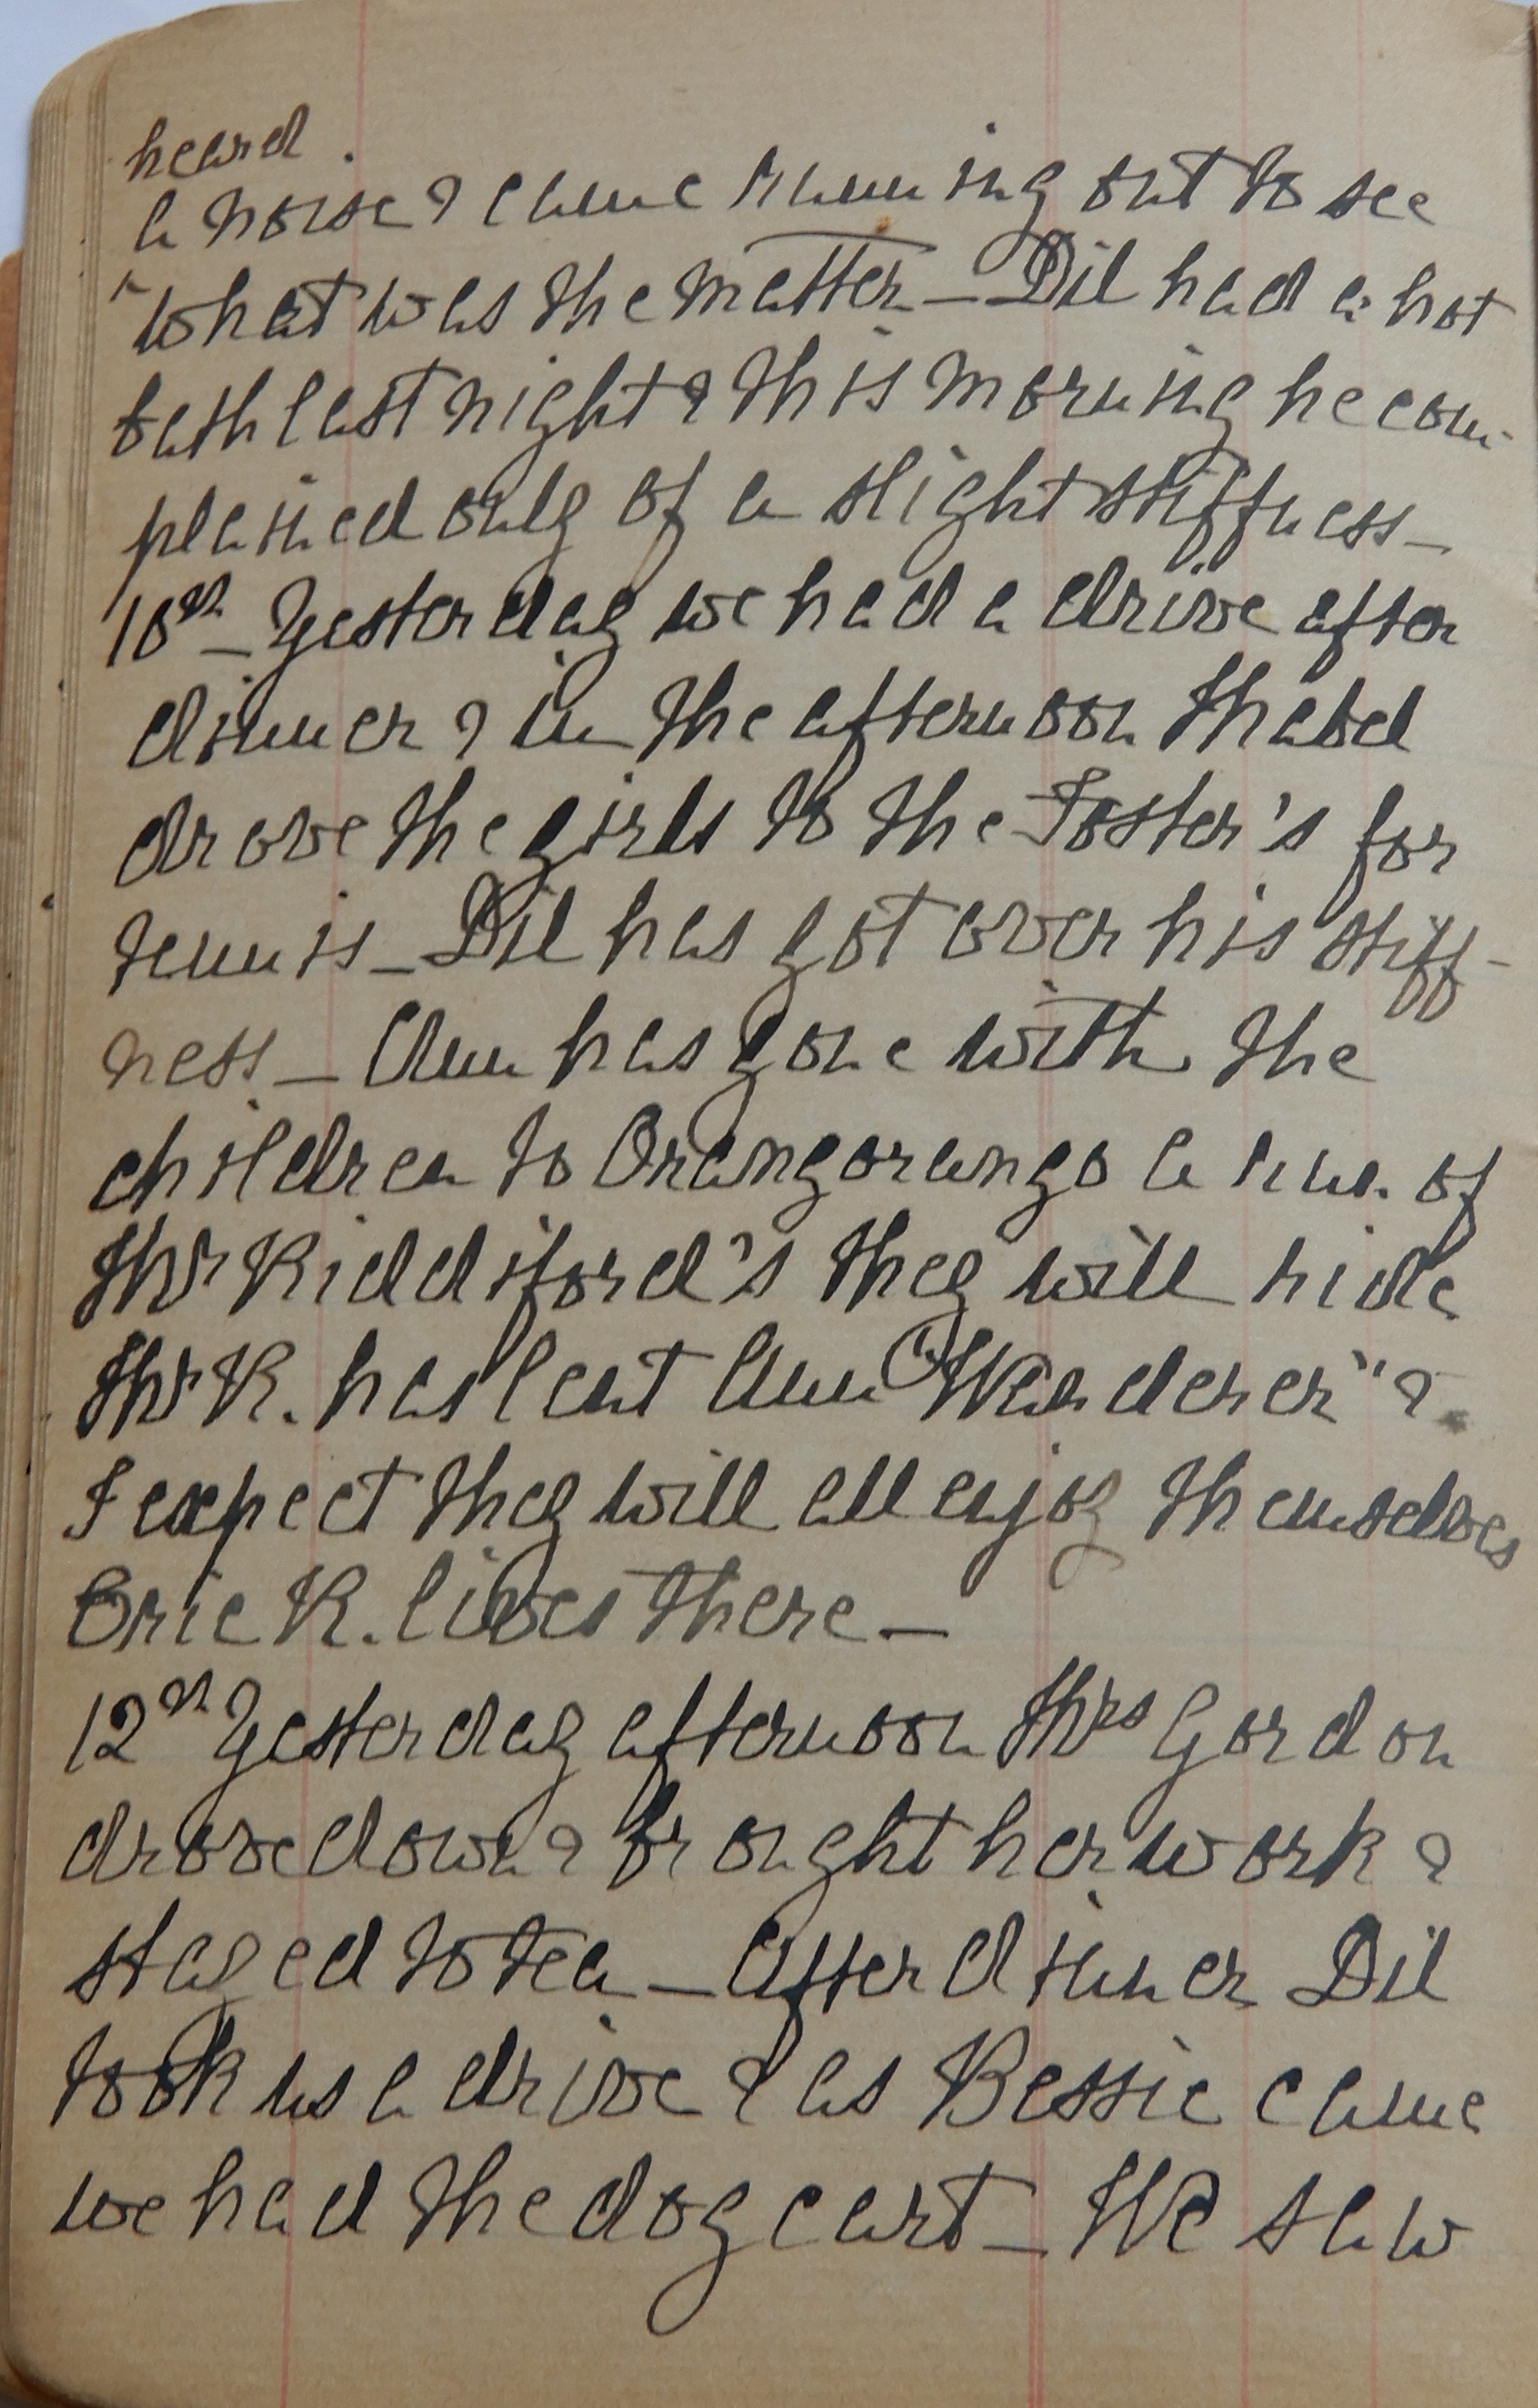 heard
a noise & came running out to see
what was the matter — Dil had a hot
bath last night & this morning he com-
plained only of a slight stiffness —
10th — Yesterday we had a drive after
dinner & in the afternoon Mabel
drove the girls to the Foster's for
tennis — Dil has got over his stiff-
ness — Ann has gone with the
children to Orangorango a run of
Mr Riddiford's they will ride
Mr R. has lent Ann "Wanderer" &
I expect they will all enjoy themselves
Eric R. lives there —
12th Yesterday afternoon Mrs Gordon
drove down & brought her work &
stayed to tea — After dinner Dil
took us a drive & as Bessie came
we had the dog cart — We saw